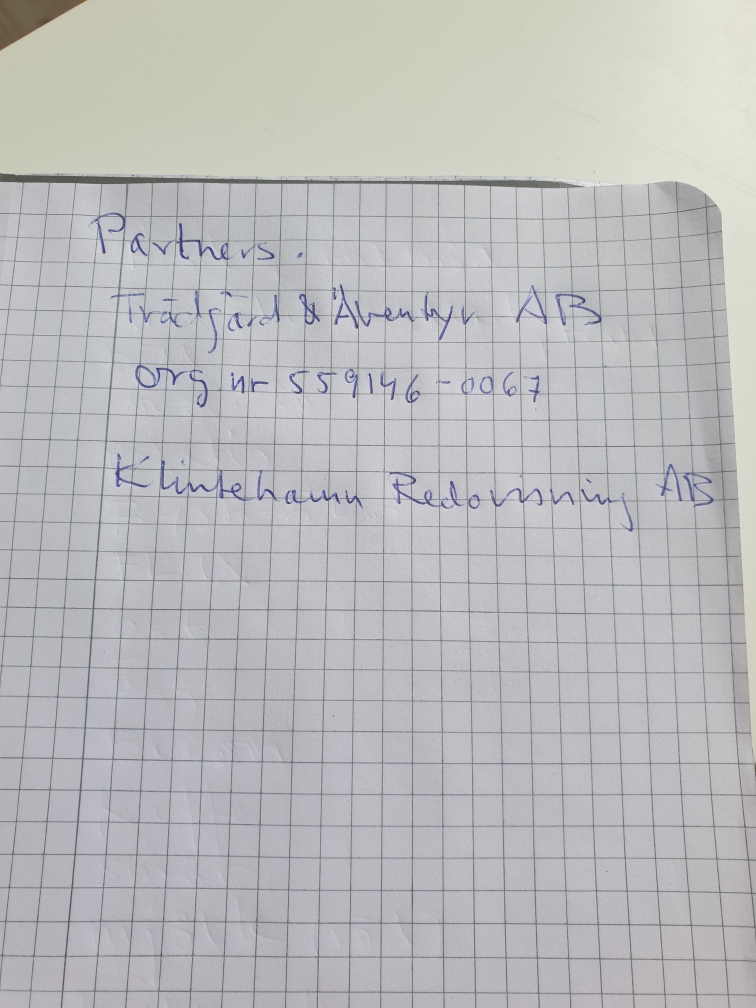 Partners.
Trädgård & Äventyr AB
org nr 559146-0067
Klintehamn Redovisning AB